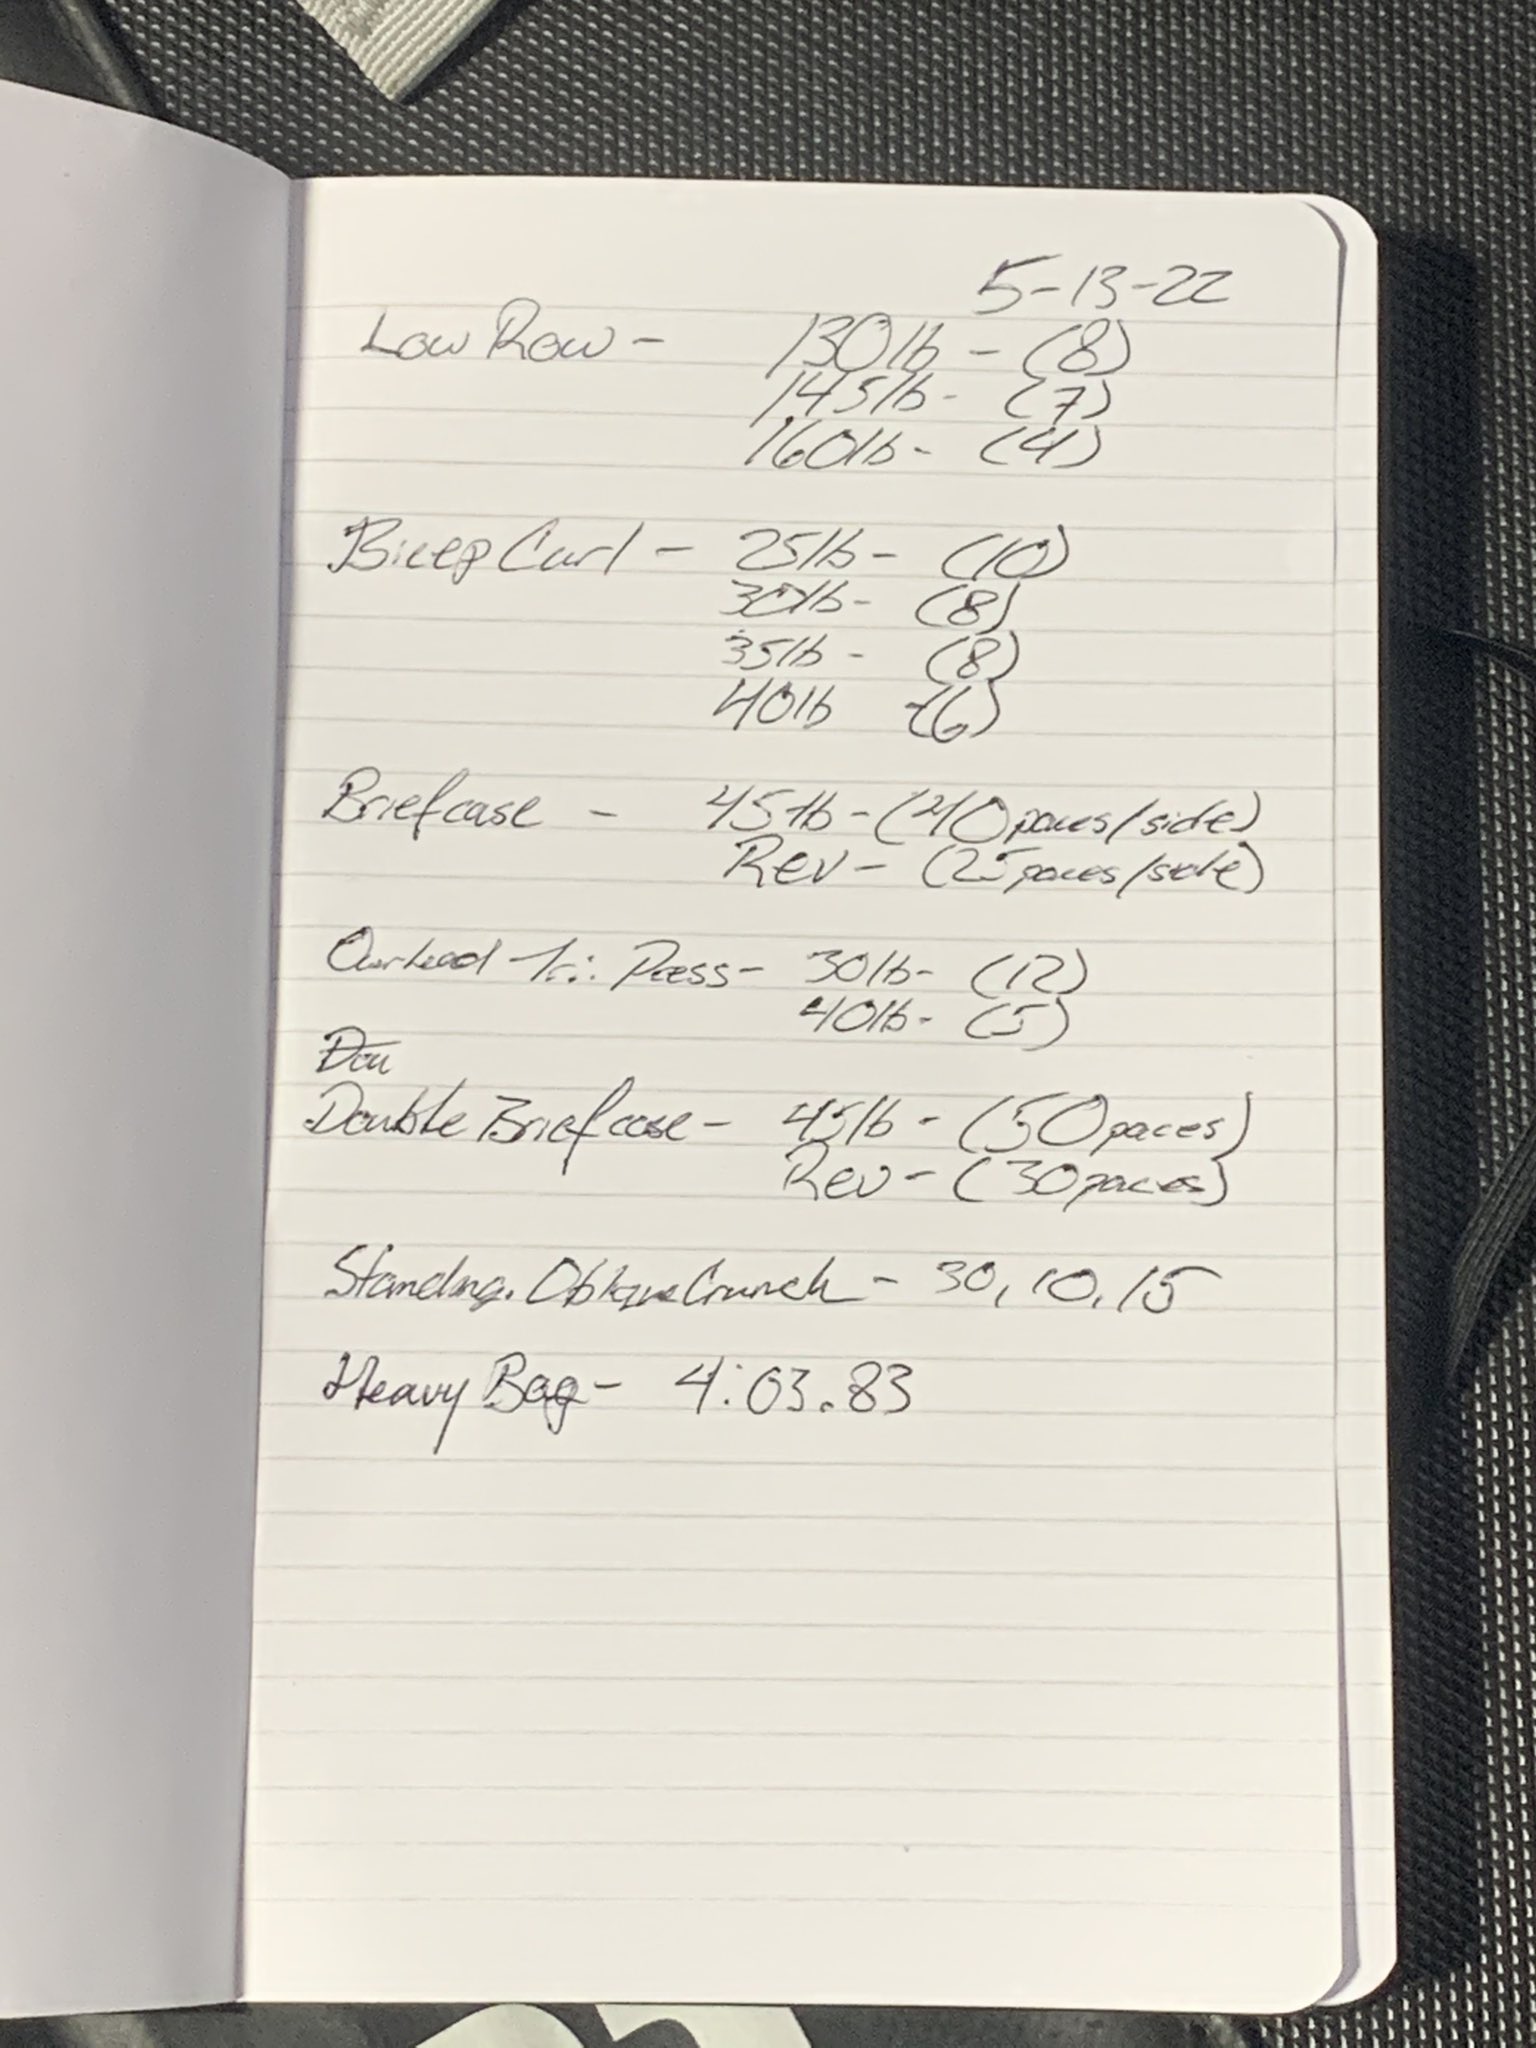 5-13-22
Low Row - 130lb - (8)
145lb - (7)
160lb - (4)
Bicep Curl - 25lb - (10)
30lb - (8)
35lb - (8)
40lb - (6)
Briefcase - 45lb - (40 paces/side)
Rev - (25 paces/side)
Overhead Tri. Press - 30lb - (12)
40lb - (5)
Dou
Double Briefcase - 45lb - (50 paces)
Rev - (30 paces)
Standing. Oblique Crunch - 30, 10, 15
Heavy Bag - 4:03.83